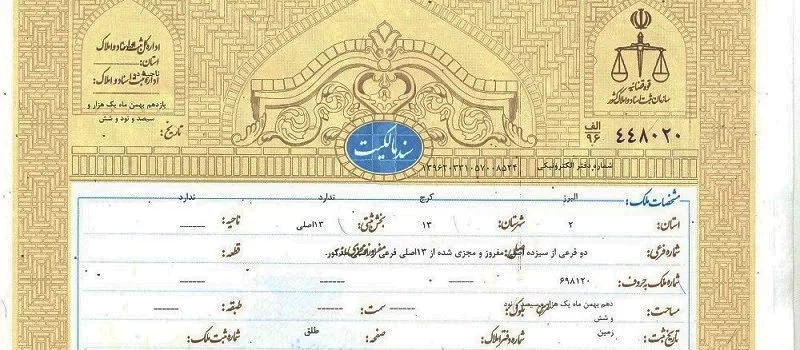 اداره کل ثبت اسناد و املاک
استان:
اداره ثبت اسناد و املاک:
ناحیه دو
یازدهم بهمن ماه یک هزار و
سیصد و نود و شش
تاریخ:
قوه قضائیه
سازمان ثبت اسناد و املاک کشور
الف
۹۶
۴۴۸۰۲۰
سند مالکیت
شماره دفتر الکترونیکی ۱۳۹۶۲۰۳۳۱۰۵۷۰۰۸۵۲۴
مشخصات ملک:
البرز کرج ندارد ندارد
استان: ۲ شهرستان: ۱۳ بخش ثبتی: ۱۳اصلی ناحیه: ------
شماره فرعی: دو فرعی از سیزده اصلی مفروز و مجزی شده از ۱۳اصلی فرعی از اصلی مذکور. قطعه:
شماره ملک بحروف: ۶۹۸۱۲۰ ------ ------ ------
مساحت: دهم بهمن ماه یک هزار و سیصد و نود بلوک: ------ سمت: ------ طبقه: ------
و شش
تاریخ ثبت: زمین شماره دفتر املاک: صفحه: طلق شماره ثبت ملک: